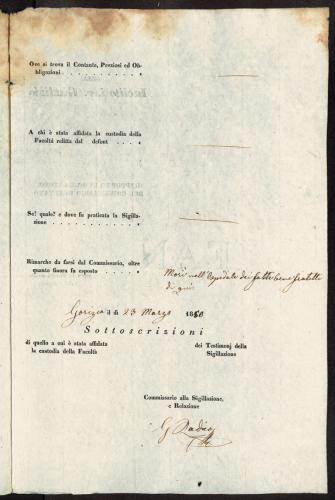 Ove si trova il Contante, Preziosi ed Ob-
bligazioni . . . . . . . . . . .
A chi è stata affidata la custodia della
Facoltà relitta dal defont . . . .
Se? quale? e dove fu praticata la Sigilla-
zione . . . . . . . . . . . . .
Rimarche da farsi dal Commissario, oltre
quanto finora fu esposto . . . . .
Morì nell'Ospedale dei fatte bene fratelli
di qui
Gorizia il dì 23 Marzo 1850
Sottoscrizioni
di quello a cui è stata affidata
la custodia della Facoltà
dei Testimonj della
Sigillazione
Commissario alla Sigillazione,
e Relazione